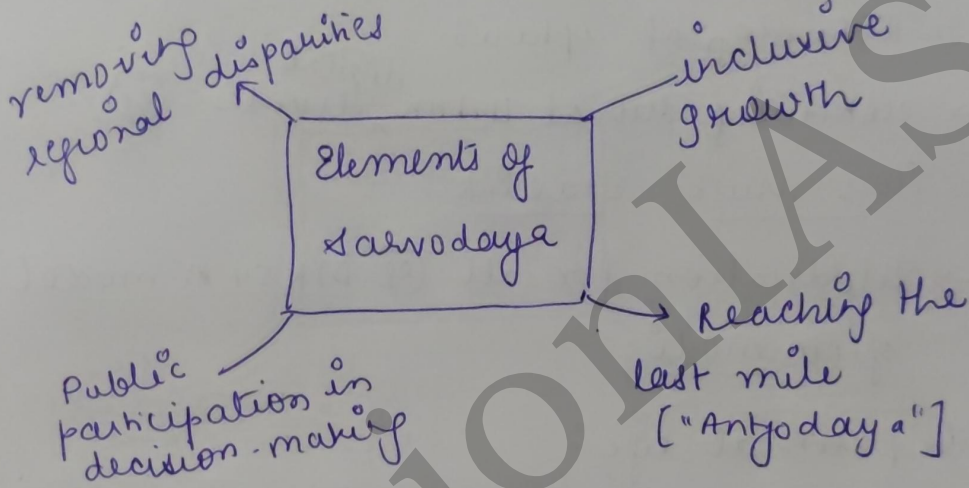 removing
regional disparities
inclusive
growth
Elements of
Sarvodaya
Public
participation in
decision-making
Reaching the
last mile
["Antyodaya"]
onIAS